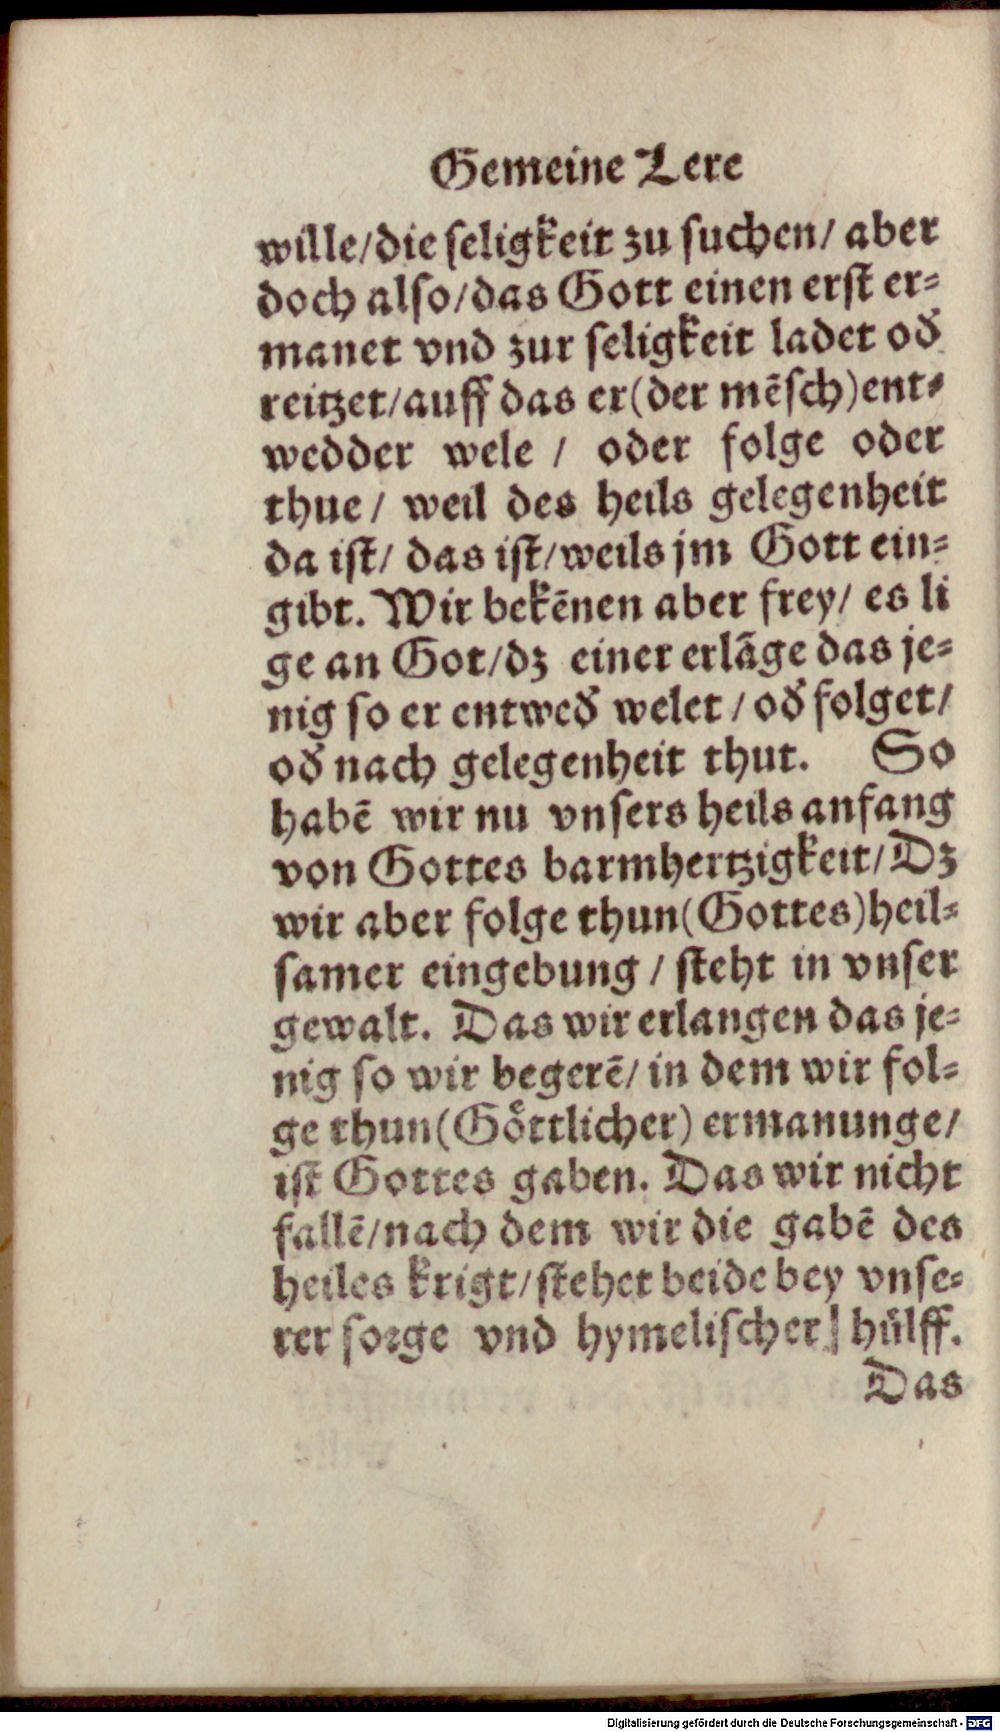 Gemeine Lere
wille/die ſeligkeit zu ſuchen/ aber
doch alſo/das Gott einen erſt er⸗
manet vnd zur ſeligkeit ladet od̕
reitzet/auff das er(der mẽſch)ent⸗
wedder wele / oder folge oder
thue / weil des heils gelegenheit
da iſt/ das iſt/weils jm Gott ein⸗
gibt. Wir bekẽnen aber frey/ es li
ge an Got/dz einer erlãge das je⸗
nig ſo er entwed̕ welet / od̕ folget/
od̕ nach gelegenheit thut. So
habẽ wir nu vnſers heils anfang
von Gottes barmhertzigkeit/Dz
wir aber folge thun(Gottes)heil⸗
ſamer eingebung / ſteht in vnſer
gewalt. Das wir erlangen das je⸗
nig ſo wir begerẽ/ in dem wir fol⸗
ge thun(Goͤttlicher) ermanunge/
iſt Gottes gaben. Das wir nicht
fallẽ/nach dem wir die gabẽ des
heiles krigt/ſtehet beide bey vnſe⸗
rer ſorge vnd hymeliſcher] huͤlff.
Das
Digitalisierung gefördert durch die Deutsche Forschungsgemeinschaft - DFG